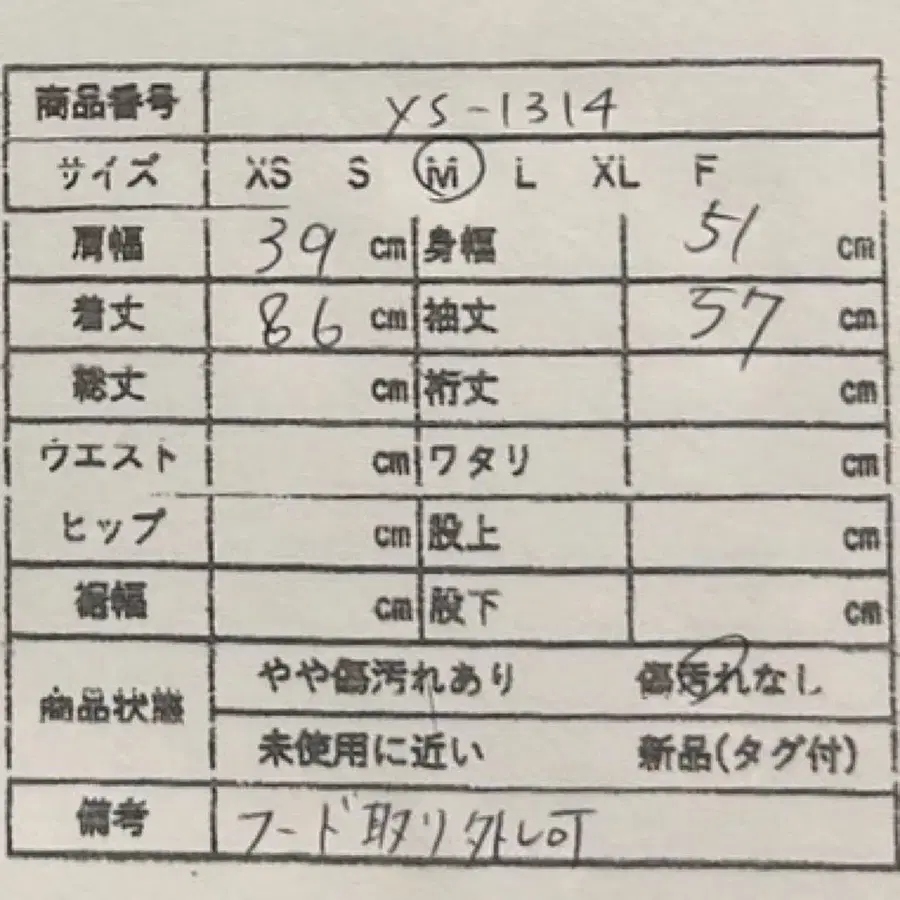 商品番号 YS-1314
サイズ XS S M L XL F
肩幅 39 cm 身幅 51 cm
着丈 86 cm 袖丈 57 cm
総丈 cm 裄丈 cm
ウエスト cm ワタリ cm
ヒップ cm 股上 cm
裾幅 cm 股下 cm
商品状態 やや傷汚れあり 傷汚れなし
未使用に近い 新品(タグ付)
備考 フード取り外し可